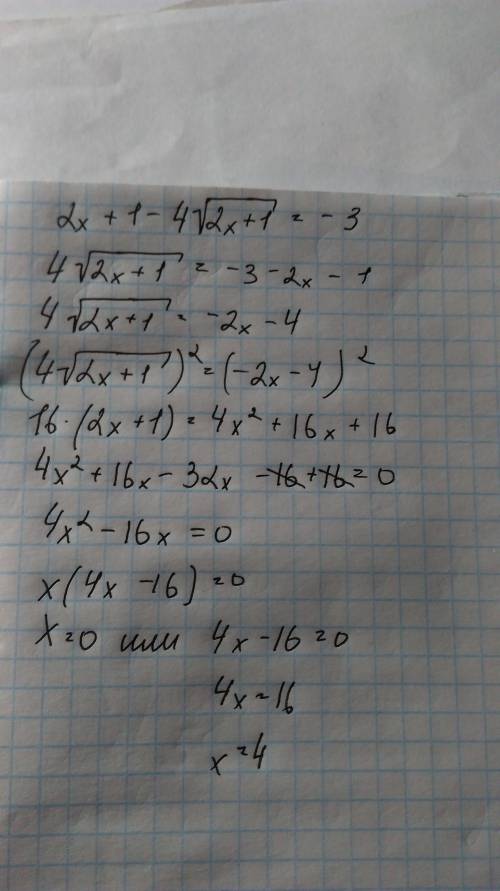 2x + 1 - 4√(2x+1) = -3
4√(2x+1) = -3 - 2x - 1
4√(2x+1) = -2x - 4
(4√(2x+1))² = (-2x - 4)²
16·(2x+1) = 4x² + 16x + 16
4x² + 16x - 32x - 16 + 16 = 0
4x² - 16x = 0
x(4x - 16) = 0
x = 0 или 4x - 16 = 0
4x = 16
x = 4